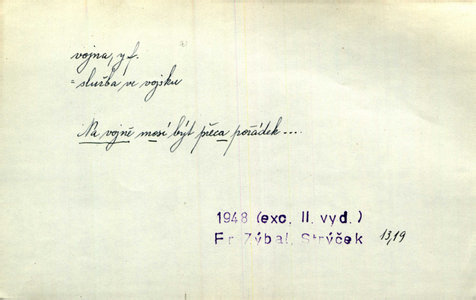 vojna, y f.
= služba ve vojsku
Na vojně mosí být přeca pořádek...
1948 (exc. II. vyd.)
Fr. Zýbal, Strýček 13,19